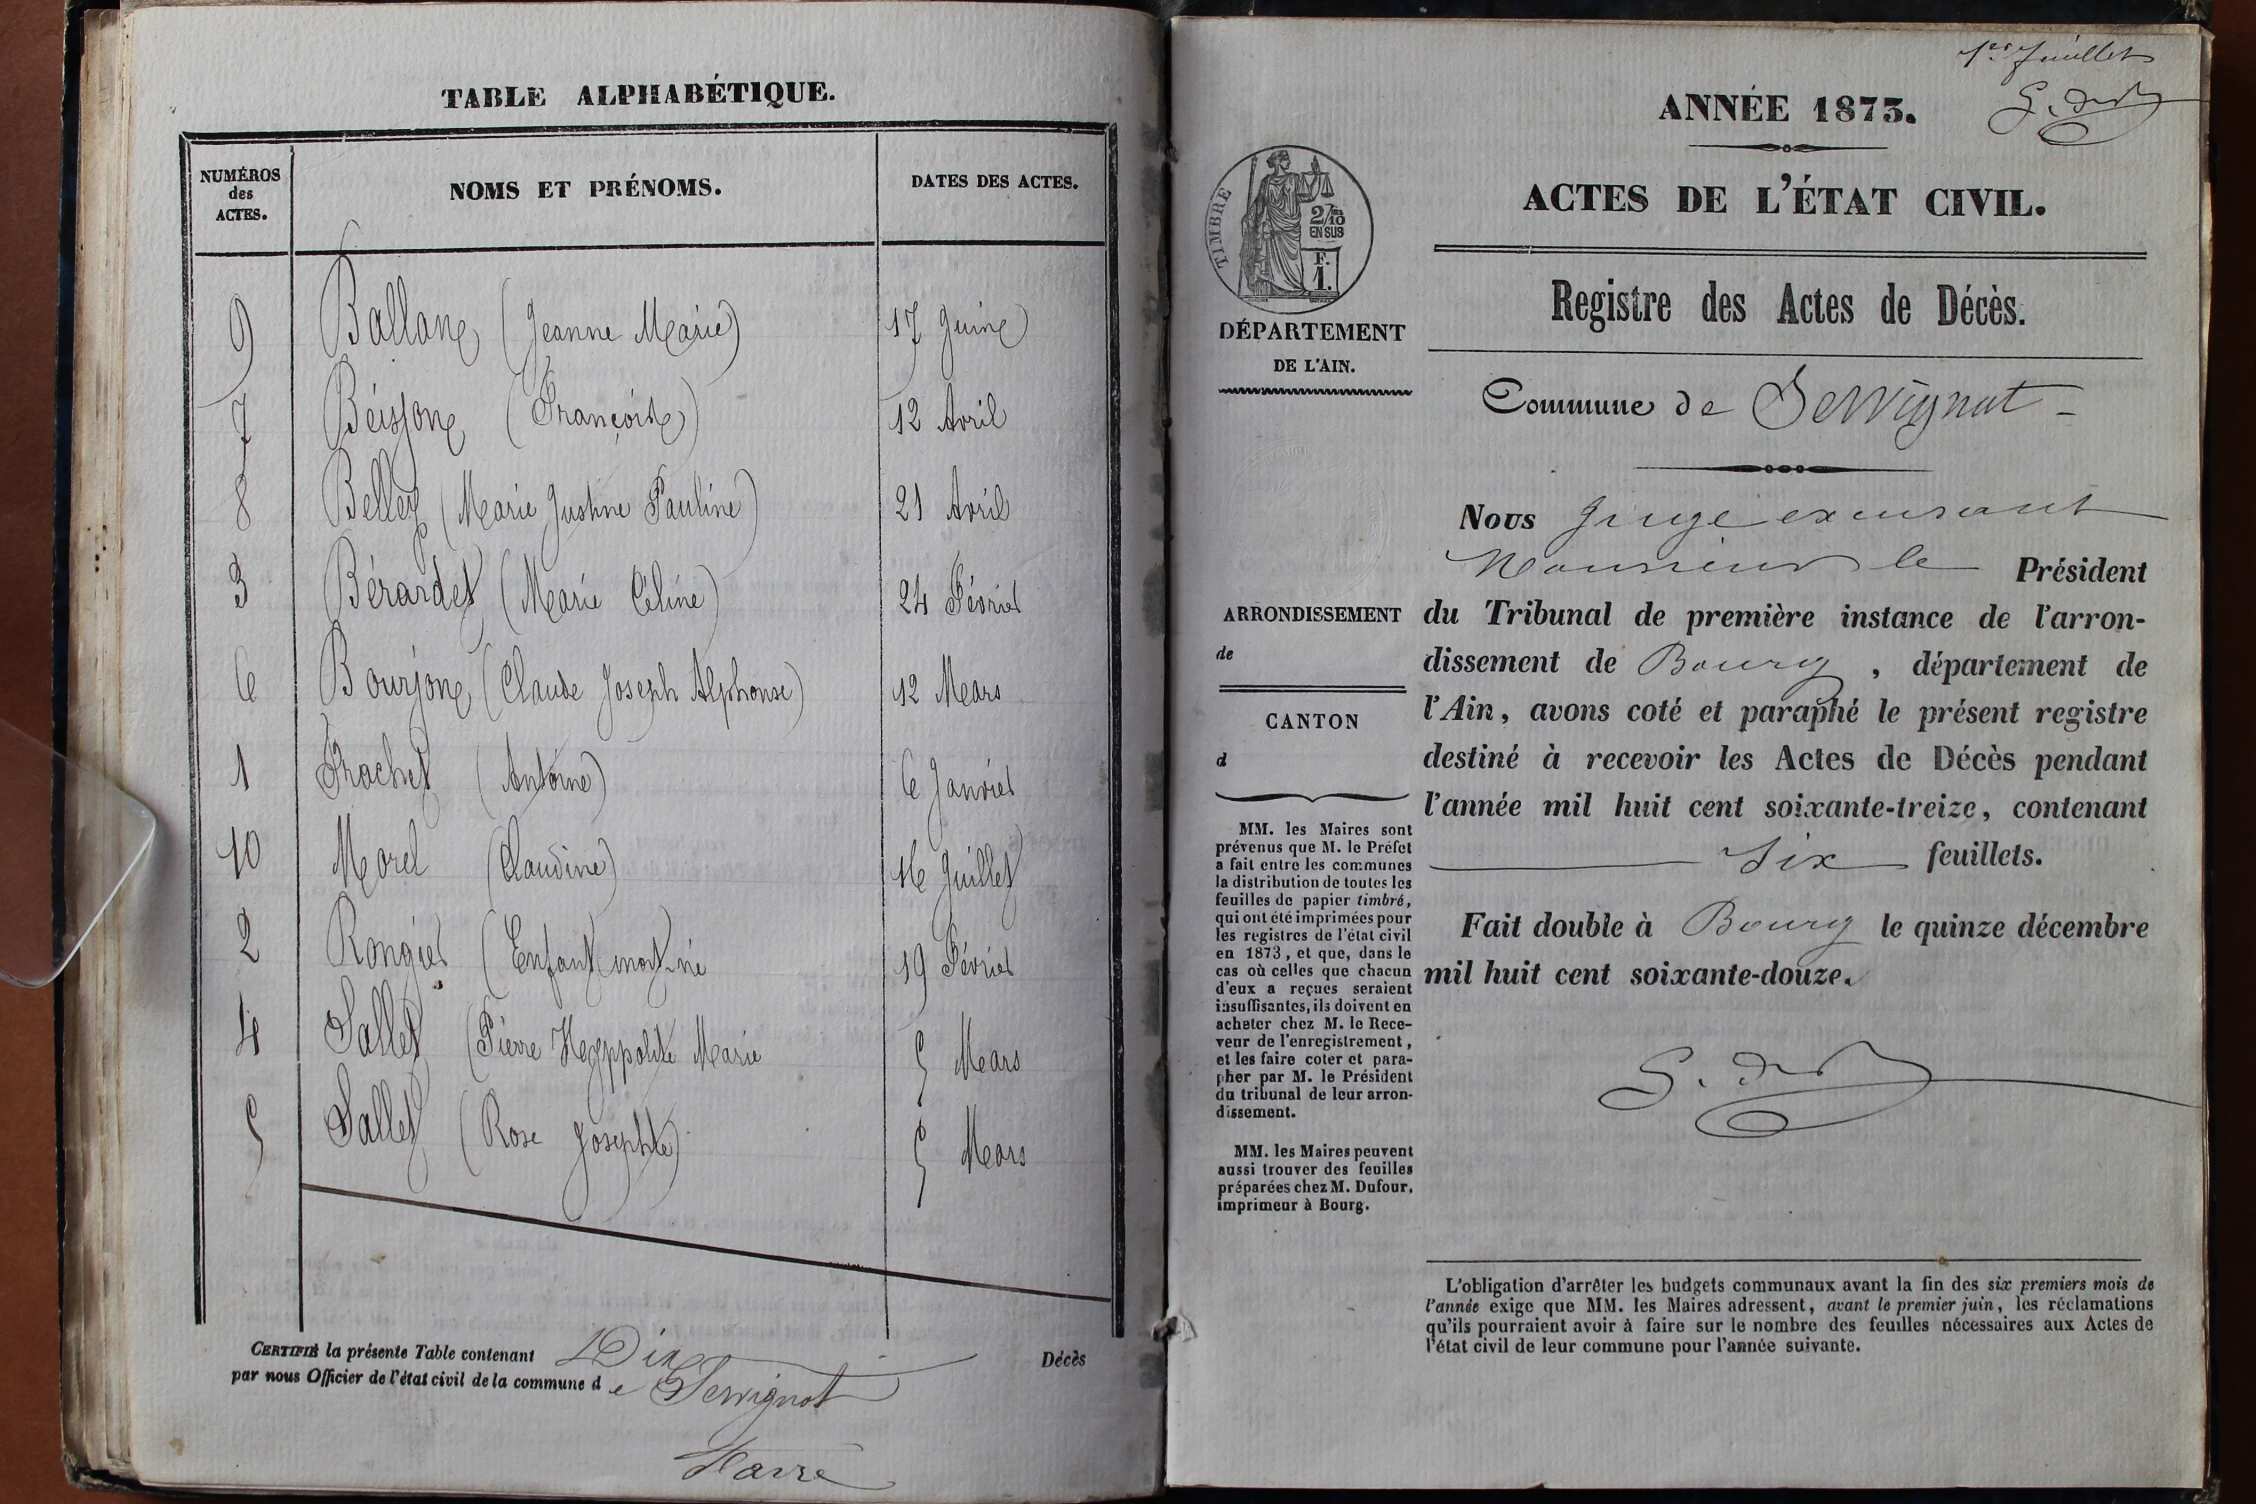 TABLE ALPHABÉTIQUE.
NUMÉROS des ACTES. NOMS ET PRÉNOMS. DATES DES ACTES.
9 Ballan (Jeanne Marie) 17 Juin
7 Béisson (Françoise) 12 Avril
8 Belley (Marie Justine Pauline) 21 Avril
3 Bérardet (Marie Céline) 24 Février
6 Bourjon (Claude Joseph Alphonse) 12 Mars
1 Frachet (Antoine) 6 Janvier
10 Morel (Claudine) 16 Juillet
2 Rongier (Enfant mort-né 19 Février
4 Sallet (Pierre Hyppolite Marie 5 Mars
5 Sallet (Rose Josephte) 5 Mars
CERTIFIÉ la présente Table contenant Dix Décès
par nous Officier de l'état civil de la commune de Servignat
1er feuillet
ANNÉE 1873.
ACTES DE L'ÉTAT CIVIL.
TIMBRE
2/10 EN SUS
F. 1.
DÉPARTEMENT
DE L'AIN.
Registre des Actes de Décès.
Commune de Servignat
Nous Juge excusant
Monsieur le Président
du Tribunal de première instance de l'arron-
dissement de Bourg, département de
l'Ain, avons coté et paraphé le présent registre
destiné à recevoir les Actes de Décès pendant
l'année mil huit cent soixante-treize, contenant
six feuillets.
Fait double à Bourg le quinze décembre
mil huit cent soixante-douze.
ARRONDISSEMENT
de
CANTON
d
MM. les Maires sont
prévenus que M. le Préfet
a fait entre les communes
la distribution de toutes les
feuilles de papier timbré,
qui ont été imprimées pour
les registres de l'état civil
en 1873, et que, dans le
cas où celles que chacun
d'eux a reçues seraient
insuffisantes, ils doivent en
acheter chez M. le Rece-
veur de l'enregistrement,
et les faire coter et para-
pher par M. le Président
du tribunal de leur arron-
dissement.
MM. les Maires peuvent
aussi trouver des feuilles
préparées chez M. Dufour,
imprimeur à Bourg.
L'obligation d'arrêter les budgets communaux avant la fin des six premiers mois de
l'année exige que MM. les Maires adressent, avant le premier juin, les réclamations
qu'ils pourraient avoir à faire sur le nombre des feuilles nécessaires aux Actes de
l'état civil de leur commune pour l'année suivante.